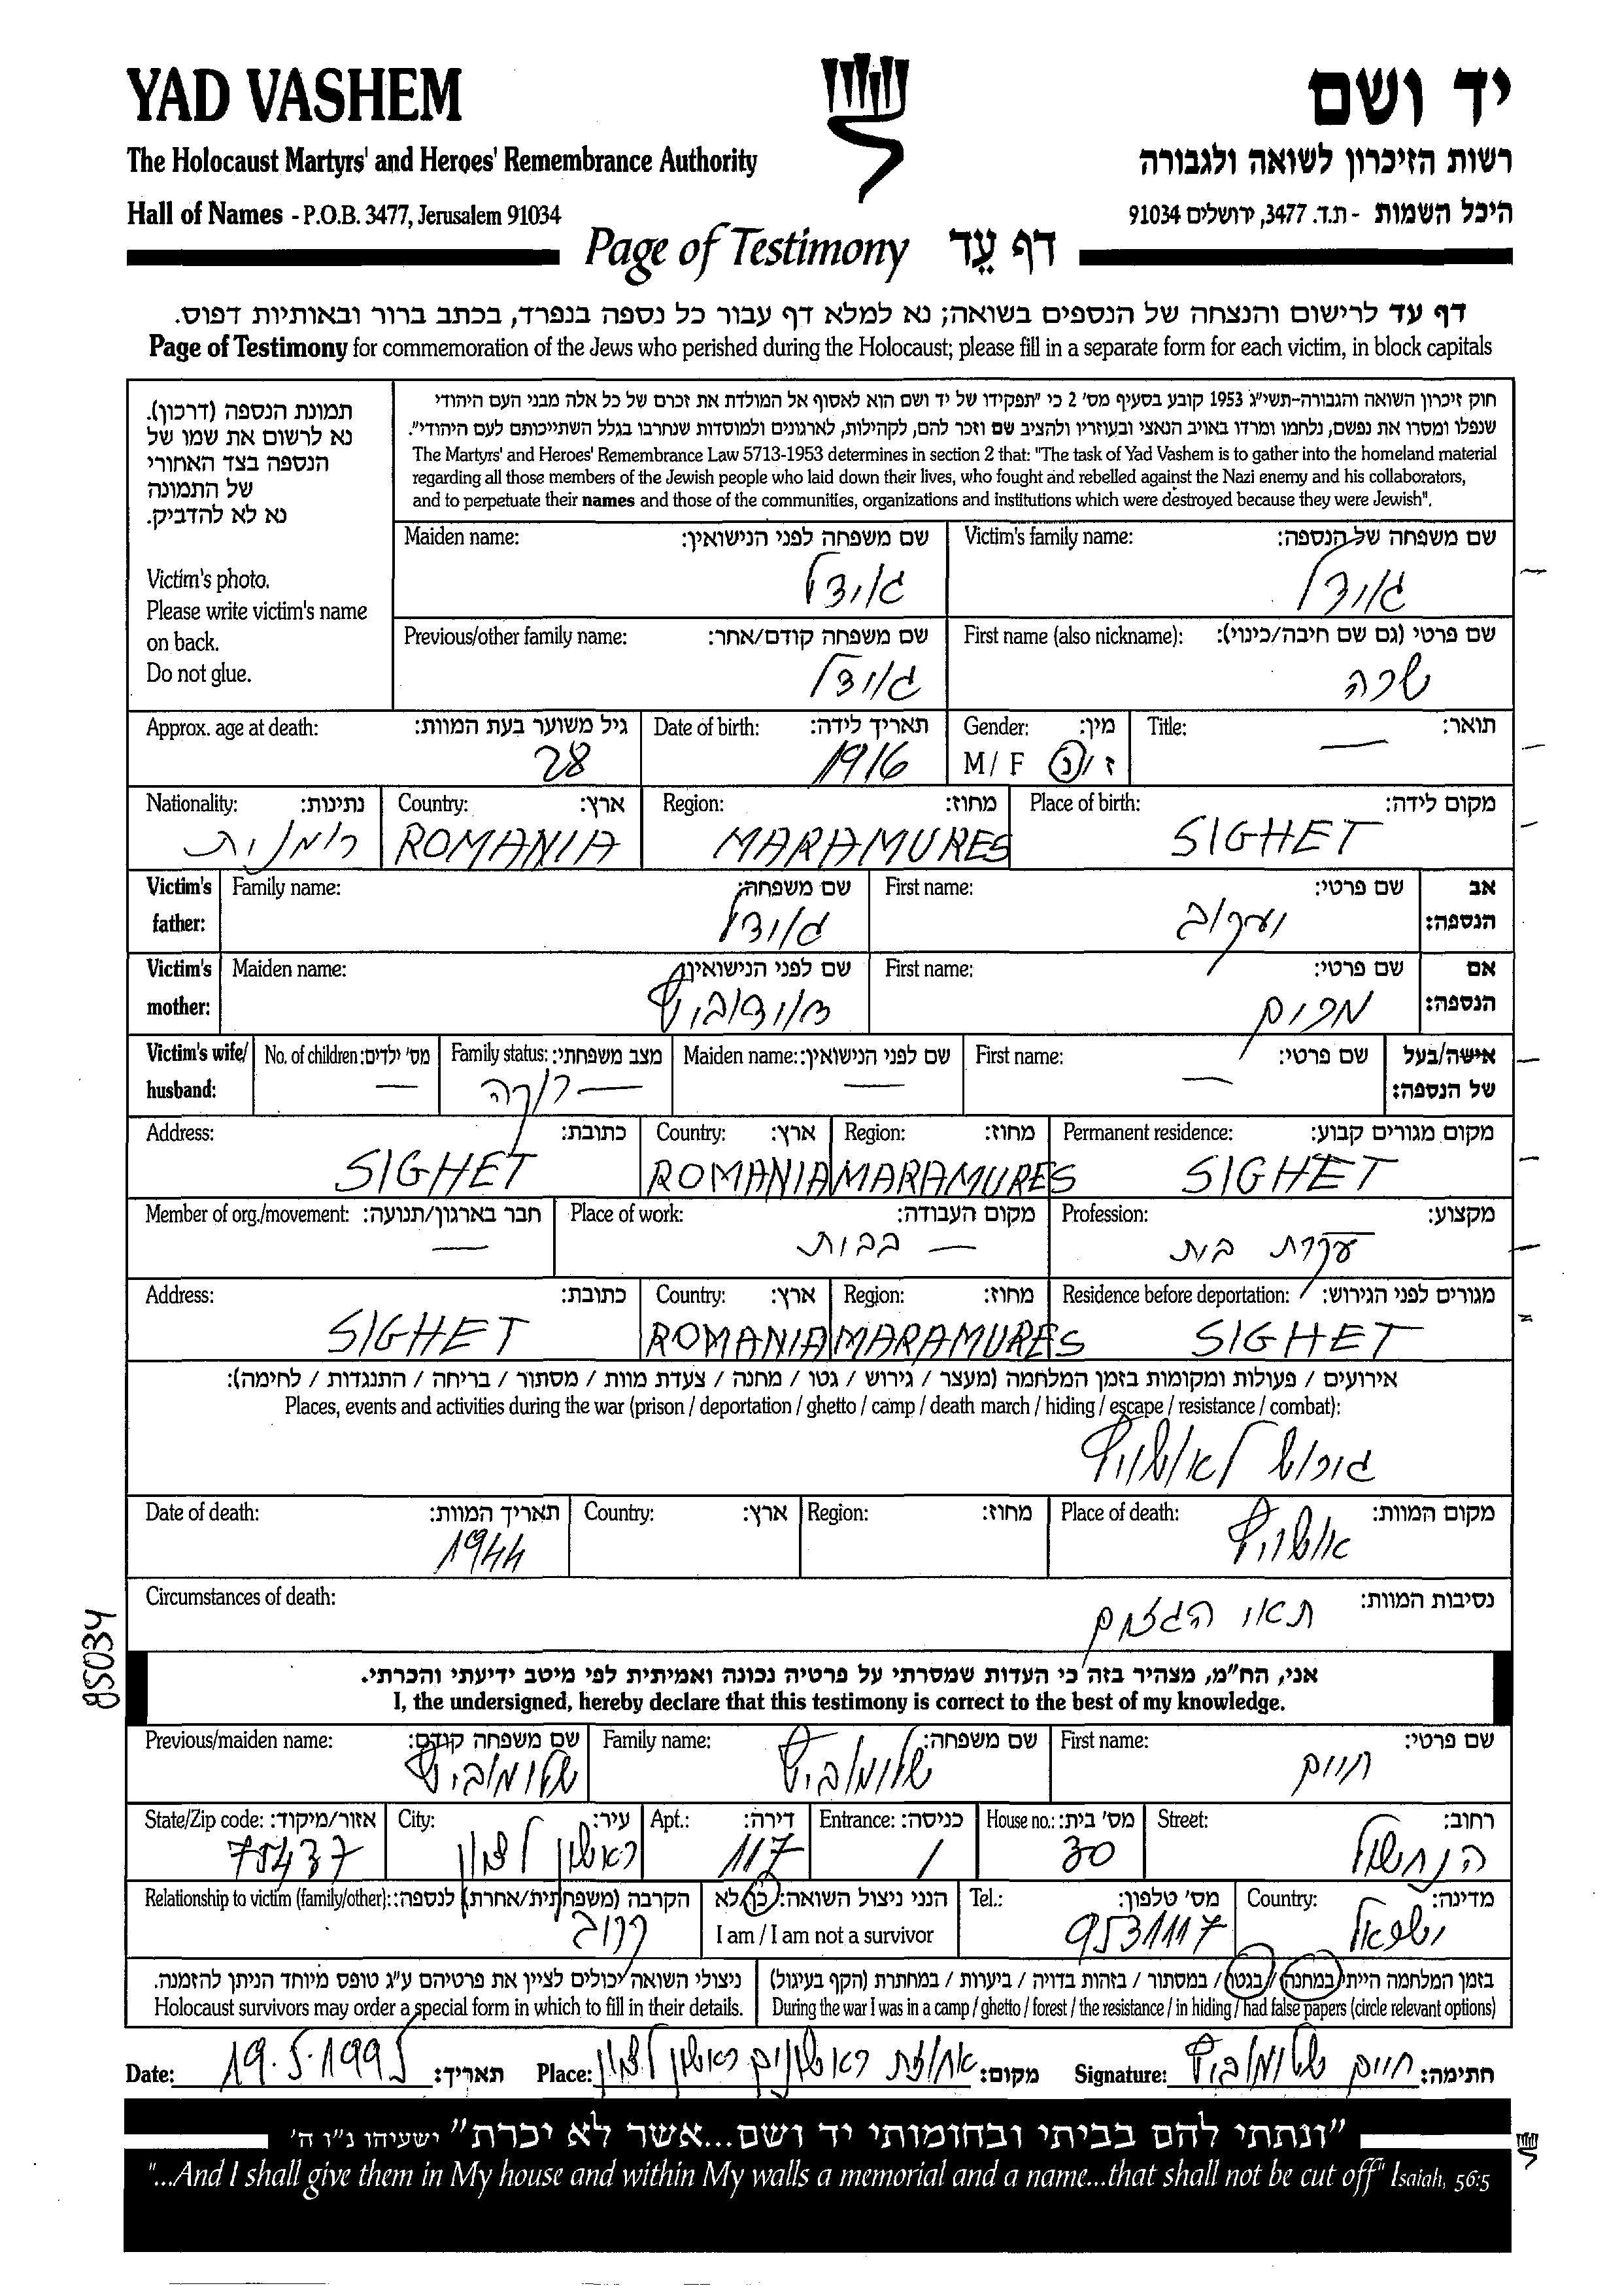 YAD VASHEM
יד ושם
The Holocaust Martyrs' and Heroes' Remembrance Authority
רשות הזיכרון לשואה ולגבורה
Hall of Names - P.O.B. 3477, Jerusalem 91034
היכל השמות - ת.ד. 3477, ירושלים 91034
Page of Testimony דף עֵד
דף עד לרישום והנצחה של הנספים בשואה; נא למלא דף עבור כל נספה בנפרד, בכתב ברור ובאותיות דפוס.
Page of Testimony for commemoration of the Jews who perished during the Holocaust; please fill in a separate form for each victim, in block capitals
תמונת הנספה (דרכון).
נא לרשום את שמו של
הנספה בצד האחורי
של התמונה
נא לא להדביק.
Victim's photo.
Please write victim's name
on back.
Do not glue.
חוק זיכרון השואה והגבורה-תשי"ג 1953 קובע בסעיף מס' 2 כי "תפקידו של יד ושם הוא לאסוף אל המולדת את זכרם של כל אלה מבני העם היהודי
שנפלו ומסרו את נפשם, נלחמו ומרדו באויב הנאצי ובעוזריו ולהציב שם וזכר להם, לקהילות, לארגונים ולמוסדות שנחרבו בגלל השתייכותם לעם היהודי".
The Martyrs' and Heroes' Remembrance Law 5713-1953 determines in section 2 that: "The task of Yad Vashem is to gather into the homeland material
regarding all those members of the Jewish people who laid down their lives, who fought and rebelled against the Nazi enemy and his collaborators,
and to perpetuate their names and those of the communities, organizations and institutions which were destroyed because they were Jewish".
Victim's family name: שם משפחה של הנספה:
גוידל
Maiden name: שם משפחה לפני הנישואין:
גוידל
First name (also nickname): שם פרטי (גם שם חיבה/כינוי):
שרה
Previous/other family name: שם משפחה קודם/אחר:
גוידל
Title: תואר:
—
Gender: מין:
M / F ז / נ
Date of birth: תאריך לידה:
1916
Approx. age at death: גיל משוער בעת המוות:
28
Place of birth: מקום לידה:
SIGHET
Region: מחוז:
MARAMURES
Country: ארץ:
ROMANIA
Nationality: נתינות:
רומנית
Victim's father: אב הנספה:
First name: שם פרטי:
יעקוב
Family name: שם משפחה:
גוידל
Victim's mother: אם הנספה:
First name: שם פרטי:
מרים
Maiden name: שם לפני הנישואין:
Victim's wife/husband: אישה/בעל של הנספה:
First name: שם פרטי:
—
Maiden name: שם לפני הנישואין:
—
Family status: מצב משפחתי:
רוקה —
No. of children: מס' ילדים:
—
Permanent residence: מקום מגורים קבוע:
SIGHET
Region: מחוז:
MARAMURES
Country: ארץ:
ROMANIA
Address: כתובת:
SIGHET
Profession: מקצוע:
עקרת בית
Place of work: מקום העבודה:
— בבית
Member of org./movement: חבר בארגון/תנועה:
—
Residence before deportation: מגורים לפני הגירוש:
SIGHET
Region: מחוז:
MARAMURES
Country: ארץ:
ROMANIA
Address: כתובת:
SIGHET
אירועים / פעולות ומקומות בזמן המלחמה (מעצר / גירוש / גטו / מחנה / צעדת מוות / מסתור / בריחה / התנגדות / לחימה):
Places, events and activities during the war (prison / deportation / ghetto / camp / death march / hiding / escape / resistance / combat):
גירוש לאושויץ
Place of death: מקום המוות:
אושויץ
Region: מחוז:
Country: ארץ:
Date of death: תאריך המוות:
1944
Circumstances of death: נסיבות המוות:
תאי הגזים
85034
אני, הח"מ, מצהיר בזה כי העדות שמסרתי על פרטיה נכונה ואמיתית לפי מיטב ידיעתי והכרתי.
I, the undersigned, hereby declare that this testimony is correct to the best of my knowledge.
First name: שם פרטי:
חיים
Family name: שם משפחה:
שלומוביץ
Previous/maiden name: שם משפחה קודם:
שלומוביץ
Street: רחוב:
הנחשול
House no.: מס' בית:
30
Entrance: כניסה:
1
Apt.: דירה:
117
City: עיר:
ראשון לציון
State/Zip code: אזור/מיקוד:
75437
Country: מדינה:
ישראל
Tel.: מס' טלפון:
9531117
הנני ניצול השואה: כן/לא
I am / I am not a survivor
Relationship to victim (family/other): הקרבה (משפחתית/אחרת) לנספה:
קרוב
בזמן המלחמה הייתי במחנה / בגטו / במסתור / בזהות בדויה / ביערות / במחתרת (הקף בעיגול)
During the war I was in a camp / ghetto / forest / the resistance / in hiding / had false papers (circle relevant options)
ניצולי השואה יכולים לציין את פרטיהם ע"ג טופס מיוחד הניתן להזמנה.
Holocaust survivors may order a special form in which to fill in their details.
Date: 19.5.1995 תאריך:
Place: אחוזת ראשונים ראשון לציון מקום:
Signature: חיים שלומוביץ חתימה:
"ונתתי להם בביתי ובחומותי יד ושם...אשר לא יכרת" ישעיהו נ"ו ה'
"...And I shall give them in My house and within My walls a memorial and a name...that shall not be cut off" Isaiah, 56:5